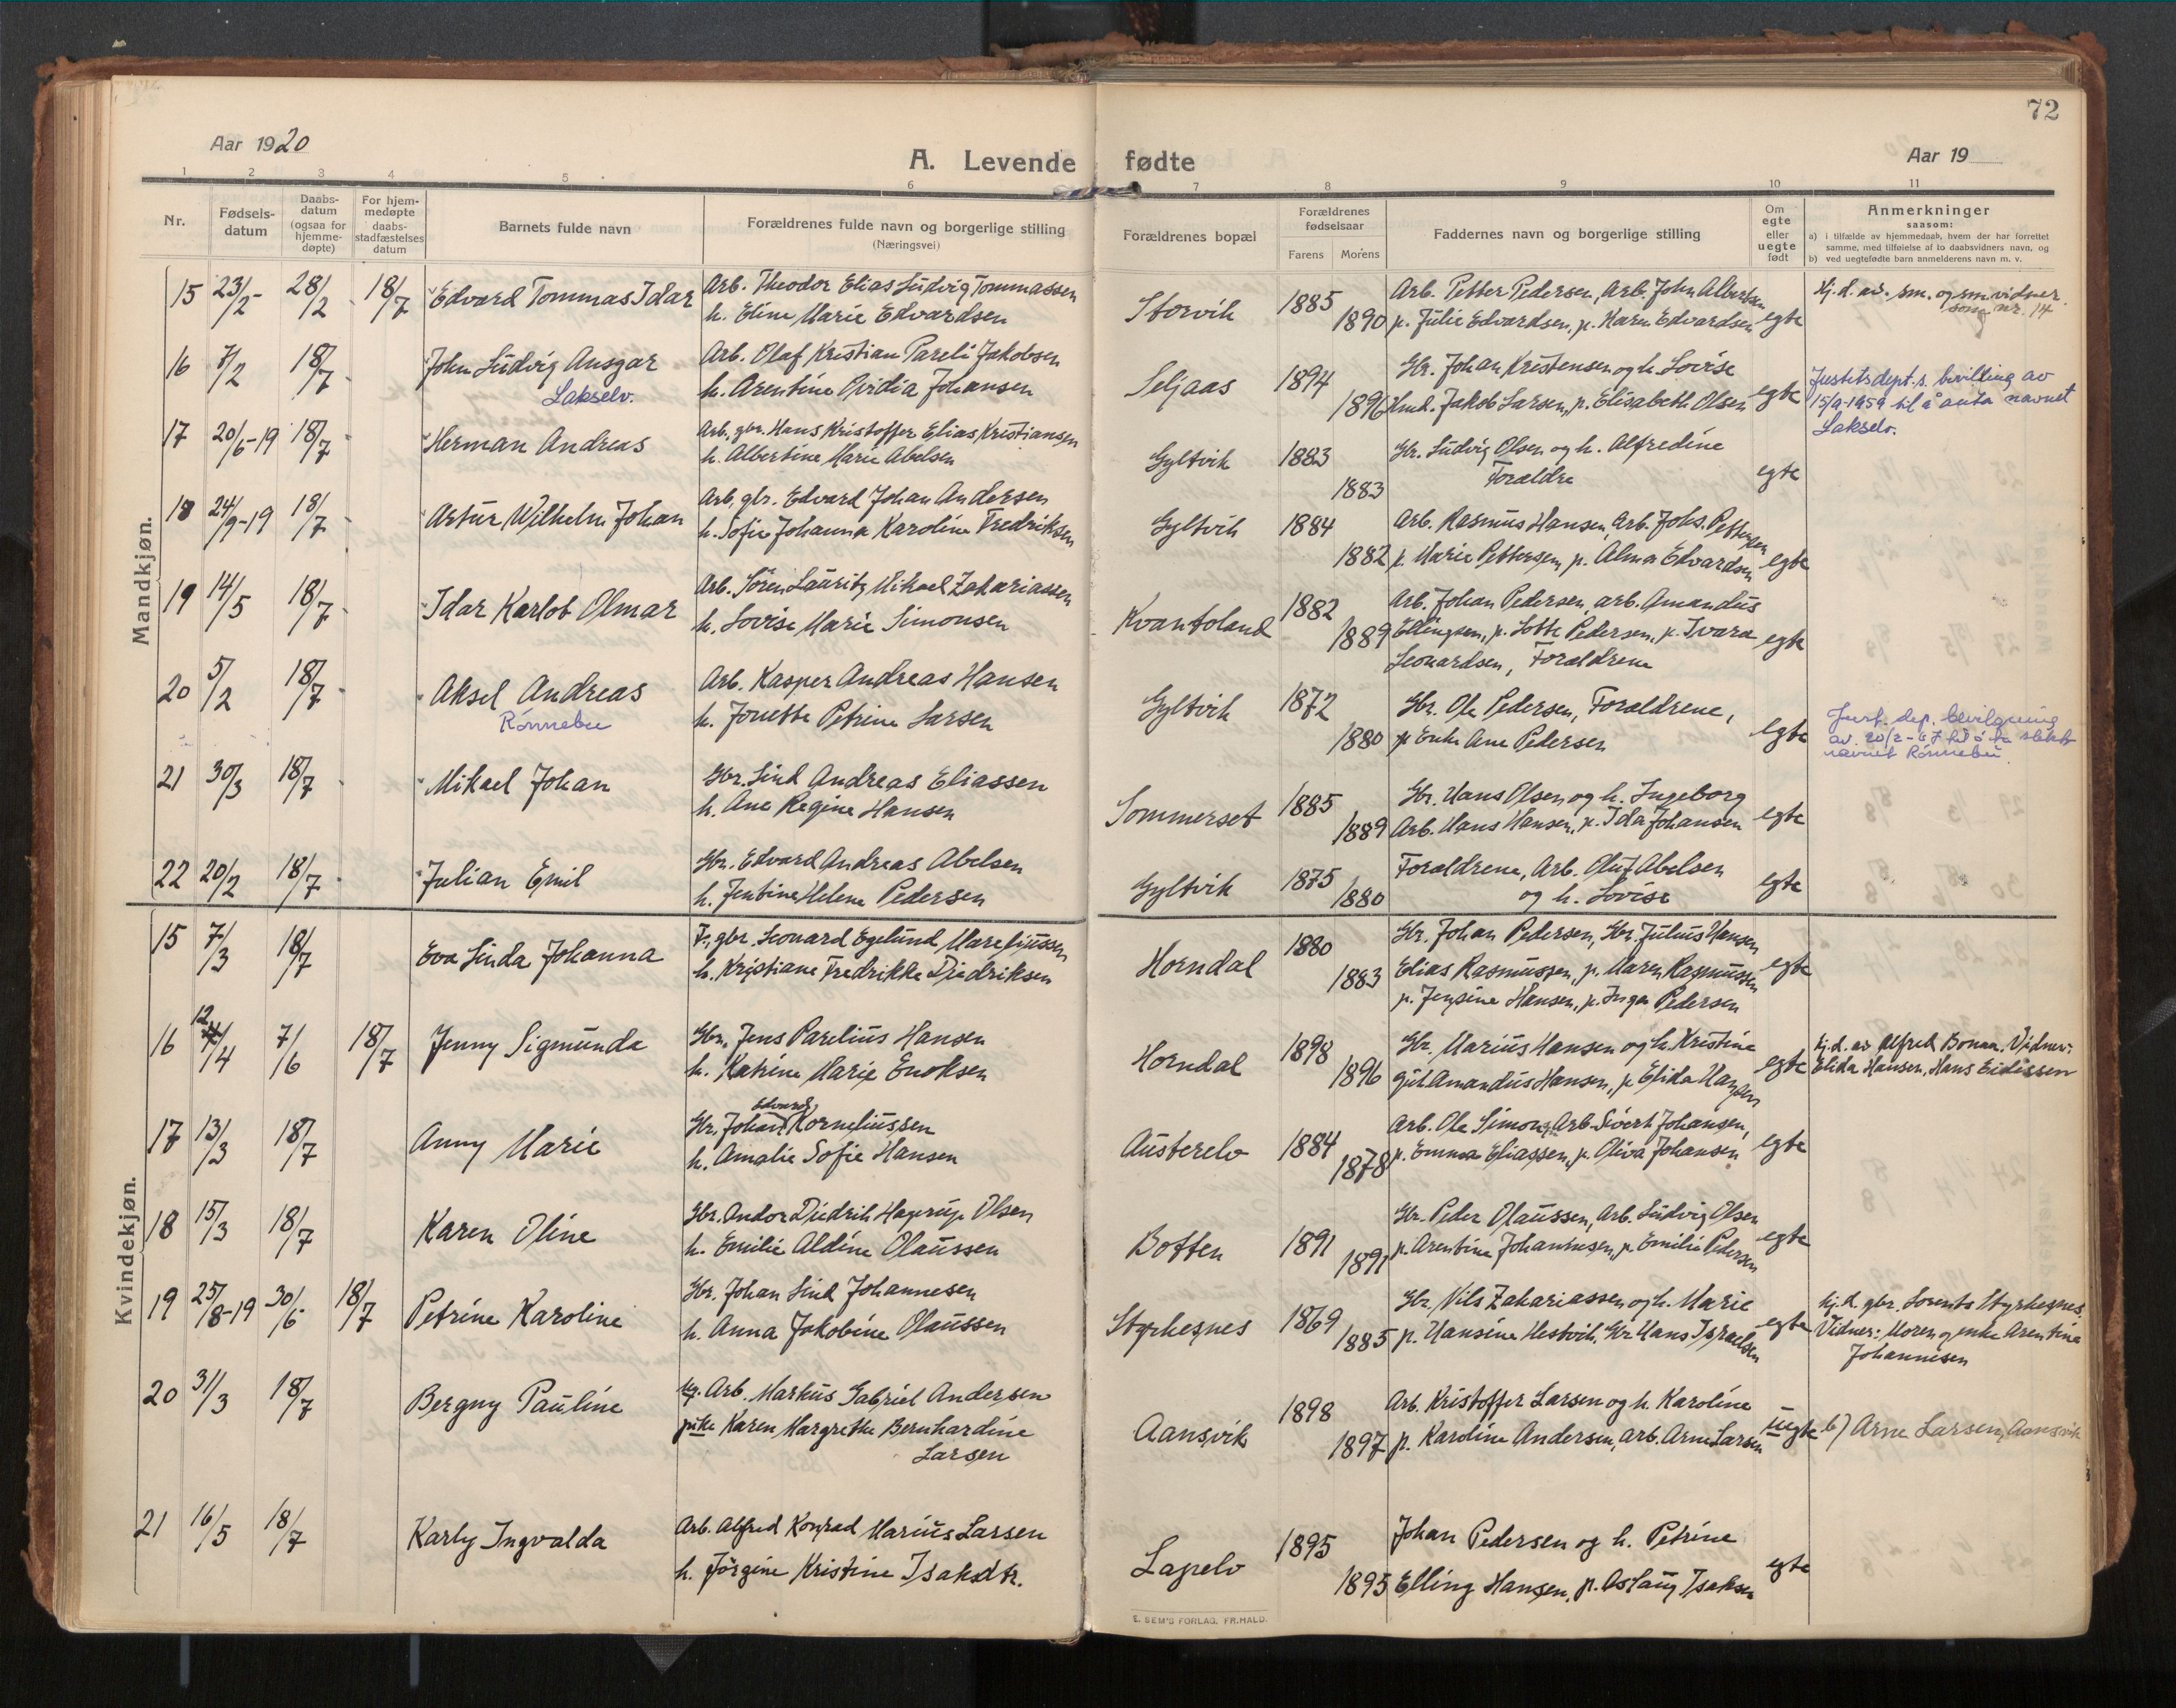 72
Aar 1920
A. Levende fødte
Aar 19
1 2 3 4 5 6 7 8 9 10 11
Nr.
Fødsels-
datum
Daabs-
datum
(ogsaa for
hjemme-
døpte)
For hjem-
medøpte
daabs-
stadfæstelses
datum
Barnets fulde navn
Forældrenes fulde navn og borgerlige stilling
(Næringsvei)
Forældrenes bopæl
Forældrenes
fødselsaar
Farens Morens
Faddernes navn og borgerlige stilling
Om
egte
eller
uegte
født
Anmerkninger
saasom:
a) i tilfælde av hjemmedaab, hvem der har forrettet
samme, med tilføielse af to daabsvidners navn, og
b) ved uegtefødte barn anmelderens navn m. v.
Mandkjøn.
15 23/2 28/2 18/7 Edvard Tommas Idar
Arb. Theodor Elias Ludvig Tommassen
h. Eline Marie Edvardsen
Storvik 1885
1890
Arb. Petter Pedersen, Arb. John Albertsen
p. Julie Edvardsen, p. Karen Edvardsen
egte
Hj. d. av. sm. og sm. vidner
som nr. 14
16 7/2 18/7 John Ludvig Ansgar
Lakselv.
Arb. Olaf Kristian Pareli Jakobsen
h. Arentine Ovidia Johansen
Seljaas 1894
1896
Gbr. Johan Kristensen og h. Lovise
Hmd. Jakob Larsen, p. Elisabeth Olsen
egte
Justitsdept.s. bevilling av
15/9-1959 til å anta navnet
Lakselv.
17 20/6-19 18/7 Herman Andreas
Arb., gbr. Hans Kristoffer Elias Kristiansen
h. Albertine Marie Abelsen
Gyltvik 1883
1883
Gbr. Ludvig Olsen og h. Alfredine
Forældre
egte
18 24/9-19 18/7 Artur Wilhelm Johan
Arb, gbr. Edvard Johan Andersen
h. Sofie Johanna Karoline Fredriksen
Gyltvik 1884
1882
Arb. Rasmus Hansen, Arb. Johs. Pettersen
p. Marie Pettersen, p. Alma Edvardsen
egte
19 14/5 18/7 Idar Karlot Olmar
Arb. Søren Lauritz Mikael Zakariassen
h. Lovise Marie Simonsen
Kvantoland 1882
1889
Arb. Johan Pedersen, arb. Amandus
Ellingsen, p. Lotte Pedersen, p. Ivara
Leonardsen, Forældrene
egte
20 5/2 18/7 Aksel Andreas
Rønnebu
Arb. Kasper Andreas Hansen
h. Jonette Petrine Larsen
Gyltvik 1872
1880
Gbr. Ole Pedersen, Forældrene,
p Enke Ane Pedersen
egte
Just. dep. bevilgning
av. 20/2-67 til å ta slekts
navnet Rønnebu.
21 30/3 18/7 Mikael Johan
Gbr. Lind Andreas Eliassen
h. Ane Regine Hansen
Sommerset 1885
1889
Gbr. Hans Olsen og h. Ingeborg
Arb. Hans Hansen, p. Ida Johansen
egte
22 20/2 18/7 Julian Emil
Gbr. Edvard Andreas Abelsen
h. Jentine Helene Pedersen
Gyltvik 1875
1880
Forældrene, Arb. Oluf Abelsen
og h. Lovise
egte
Kvindekjøn.
15 7/3 18/7 Eva Linda Johanna
F., gbr. Leonard Egelund Mareliussen
h. Kristiane Fredrikke Diedriksen
Horndal 1880
1883
Gbr. Johan Pedersen, Gbr. Julius Hansen
Elias Rasmussen, p. Maren Rasmussen
p. Jensine Hansen, p. Inga Pedersen
egte
16 12/4 7/6 18/7 Jenny Sigmunda
Gbr. Jens Parelius Hansen
h. Katrine Marie Enoksen
Horndal 1898
1896
Gbr. Marius Hansen og h. Kristine
gut Amandus Hansen, p Elida Hansen
egte
hj. d. av Alfred Bonaa. Vidner:
Elida Hansen, Hans Eidissen
17 13/3 18/7 Anny Marie
Edvard
Gbr. Johan Korneliussen
h. Amalie Sofie Hansen
Austerelv 1884
1878
Arb. Ole Simons, Arb. Sivert Johansen,
p. Emma Eliassen, p. Oliva Johansen
egte
18 15/3 18/7 Karen Oline
Gbr. Andor Diedrik Hagerup Olsen
h. Emilie Aldine Olaussen
Botten 1891
1891
Gbr. Peder Olaussen, Arb. Ludvig Olsen
p. Arentine Johannesen, p. Emilie Pedersen
egte
19 25/8-19 30/6 18/7 Petrine Karoline
Gbr. Johan Lind Johannesen
h. Anna Jakobine Olaussen
Styrkesnes 1869
1885
Gbr. Nils Zakariassen og h. Marie
p. Hansine Hestvik, Gbr Hans Israelsen
egte
hj. d. gbr. Lorents Styrkesnes.
Vidner: Moren og enke Arentine
Johannesen
20 31/3 18/7 Bergny Pauline
Ug. Arb. Markus Gabriel Andersen
pike Karen Margrethe Bernhardine
Larsen
Aansvik 1898
1897
Arb. Kristoffer Larsen og h. Karoline
p. Karoline Andersen, arb. Arne Larsen
uegte
b) Arne Larsen, Aansvik
21 16/5 18/7 Karly Ingvalda
Arb. Alfred Konrad Marius Larsen
h. Jørgine Kristine Isaksdtr.
Lapelv 1895
1895
Johan Pedersen og h. Petrine
Elling Hansen, p. Aslaug Isaksen
egte
E. SEM'S FORLAG. FR.HALD.